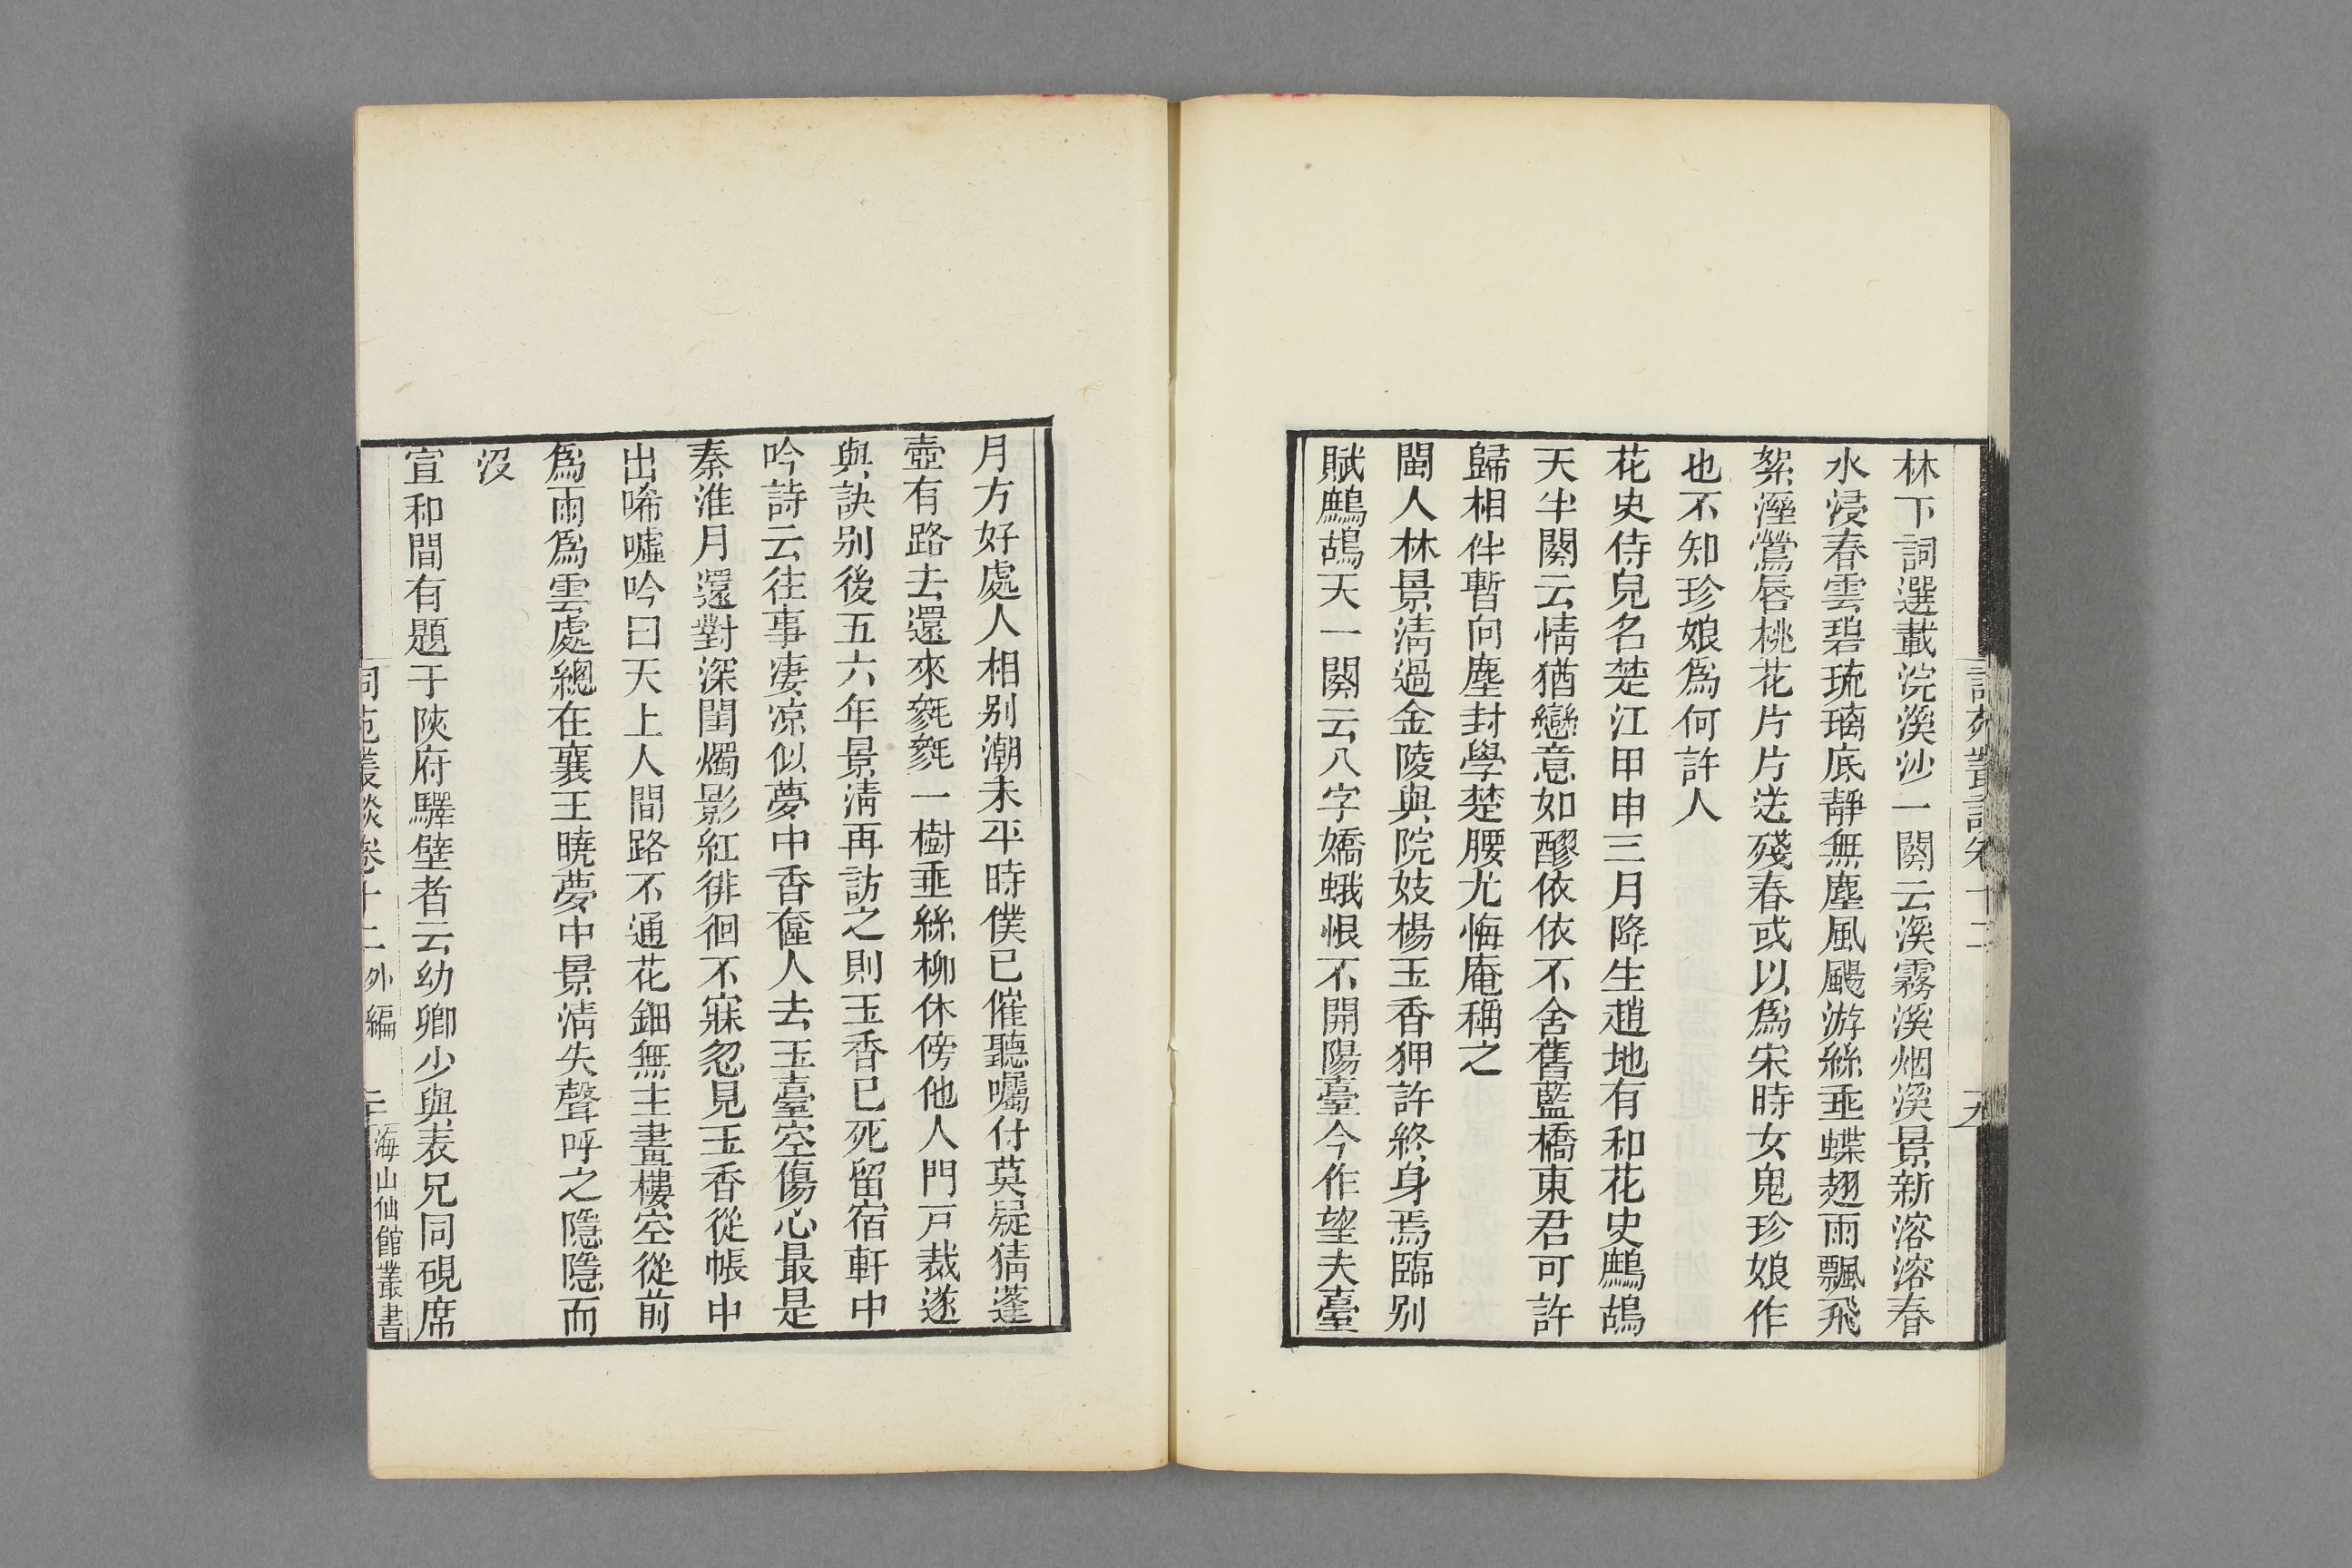 林下詞選載浣溪沙一闋云溪霧溪烟溪景新溶溶春
水浸春雲碧琉璃底靜無塵風颺游絲垂蝶翅雨飄飛
絮溼鶯唇桃花片片送殘春或以爲宋時女鬼珍娘作
也不知珍娘爲何許人
花史侍兒名楚江甲申三月降生趙地有和花史鷓鴣
天半闋云情猶戀意如醪依依不舍舊藍橋東君可許
歸相伴暫向塵封學楚腰尤悔庵稱之
閩人林景淸過金陵與院妓楊玉香狎許終身焉臨别
賦鷓鴣天一闋云八字嬌蛾恨不開陽臺今作望夫臺
月方好處人相别潮未平時僕已催聽囑付莫疑猜蓬
壺有路去還來毿毿一樹垂絲柳休傍他人門戸栽遂
與訣别後五六年景淸再訪之則玉香已死留宿軒中
吟詩云往事凄凉似夢中香奩人去玉臺空傷心最是
秦淮月還對深閨燭影紅徘徊不寐忽見玉香從帳中
出唏噓吟曰天上人間路不通花鈿無主畫樓空從前
爲雨爲雲處總在襄王曉夢中景淸失聲呼之隱隱而
没
宣和間有題于陜府驛壁者云幼卿少與表兄同硯席
詞苑叢談卷十二 外編 海山仙館叢書